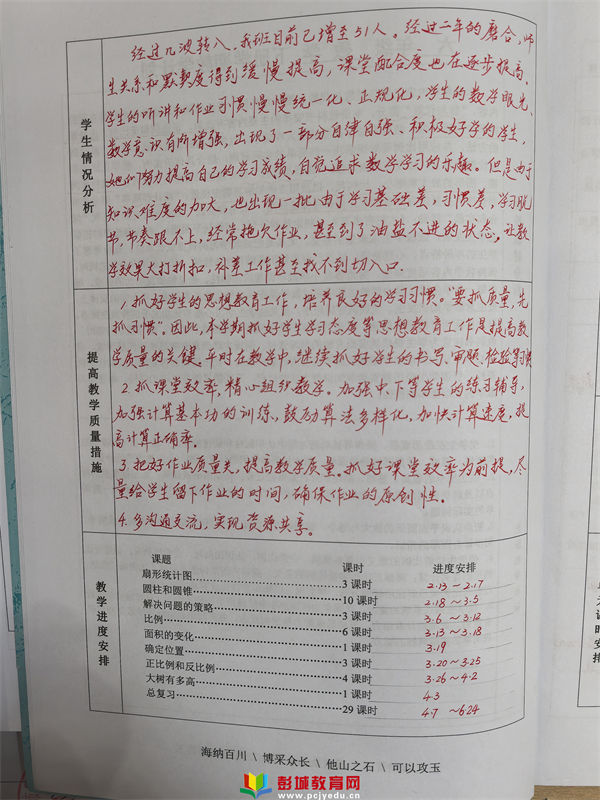 学生情况分析
经过几波转入，我班目前已增至51人。经过二年的磨合，师
生关系和默契度得到缓慢提高，课堂配合度也在逐步提高，
学生的听讲和作业习惯慢慢统一化、正规化，学生的数学眼光、
数学意识有所增强，出现了一部分自律自强、积极好学的学生，
她们努力提高自己的学习成绩，自觉追求数学学习的乐趣。但是由于
知识难度的加大，也出现一批由于学习基础差，习惯差，学习脱
节，节奏跟不上，经常拖欠作业，甚至到了油盐不进的状态，让教
学效果大打折扣，补差工作甚至找不到切入口.
提高教学质量措施
1.抓好学生的思想教育工作，培养良好的学习习惯。“要抓质量，先
抓习惯”。因此，本学期抓好学生学习态度等思想教育工作是提高教
学质量的关键。平时在教学中，继续抓好学生的书写、审题、检验等习惯
2.抓课堂效率，精心组织教学。加强中、下等学生的练习辅导，
加强计算基本功的训练，鼓励算法多样化，加快计算速度，提
高计算正确率。
3.把好作业质量关，提高教学质量。抓好课堂效率为前提，尽
量给学生留下作业的时间，确保作业的原创性。
4.多沟通交流，实现资源共享。
教学进度安排
课题 课时 进度安排
扇形统计图 3课时 2.13-2.17
圆柱和圆锥 10课时 2.18～3.5
解决问题的策略 3课时 3.6～3.12
比例 6课时 3.13～3.18
面积的变化 1课时 3.19
确定位置 3课时 3.20～3.25
正比例和反比例 4课时 3.26～4.2
大树有多高 1课时 4.3
总复习 29课时 4.7～6.24
海纳百川 \ 博采众长 \ 他山之石 \ 可以攻玉
彭城教育网
www.pcjyedu.cn